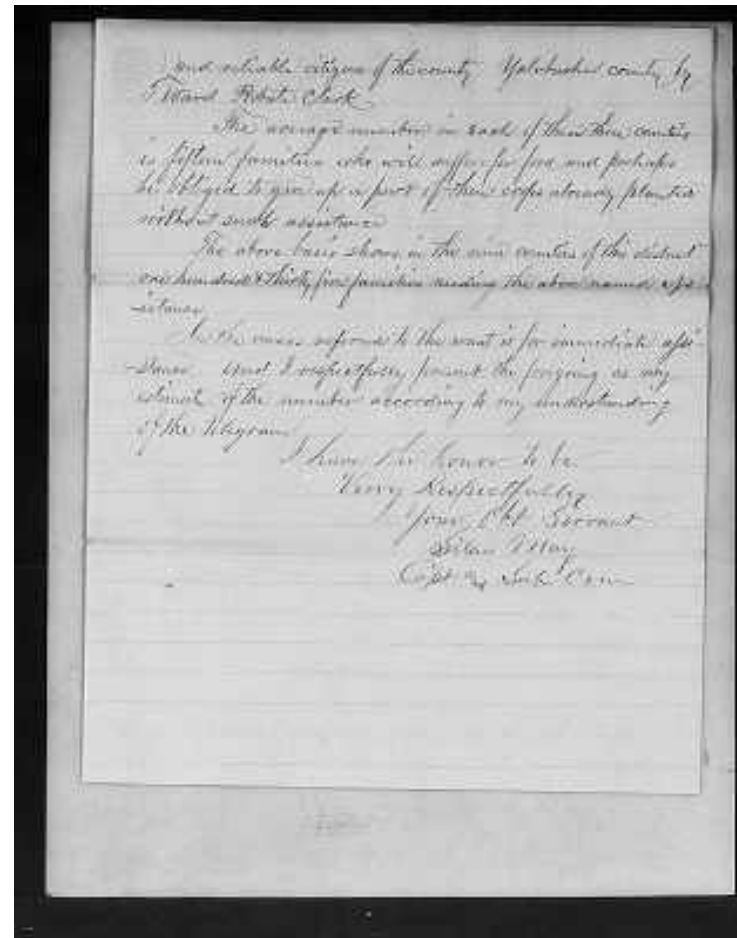 and reliable citizens of the county Yalobusha county by
Ward Probate Clerk
The average number in each of these three counties
is fifteen families who will suffer for food and perhaps
be obliged to give up a part of their crops already planted
without such assistance
The above basis shows in the nine counties of this district
one hundred & thirty five families needing the above named ass
-istance
In the cases referred to the want is for immediate assi-
-stance and I respectfully present the forgoing as my
estimate of the number according to my understanding
of the telegram
I have the honor to be
Very Respectfully
Your Obt Servant
Silas May
Capt & Sub Com